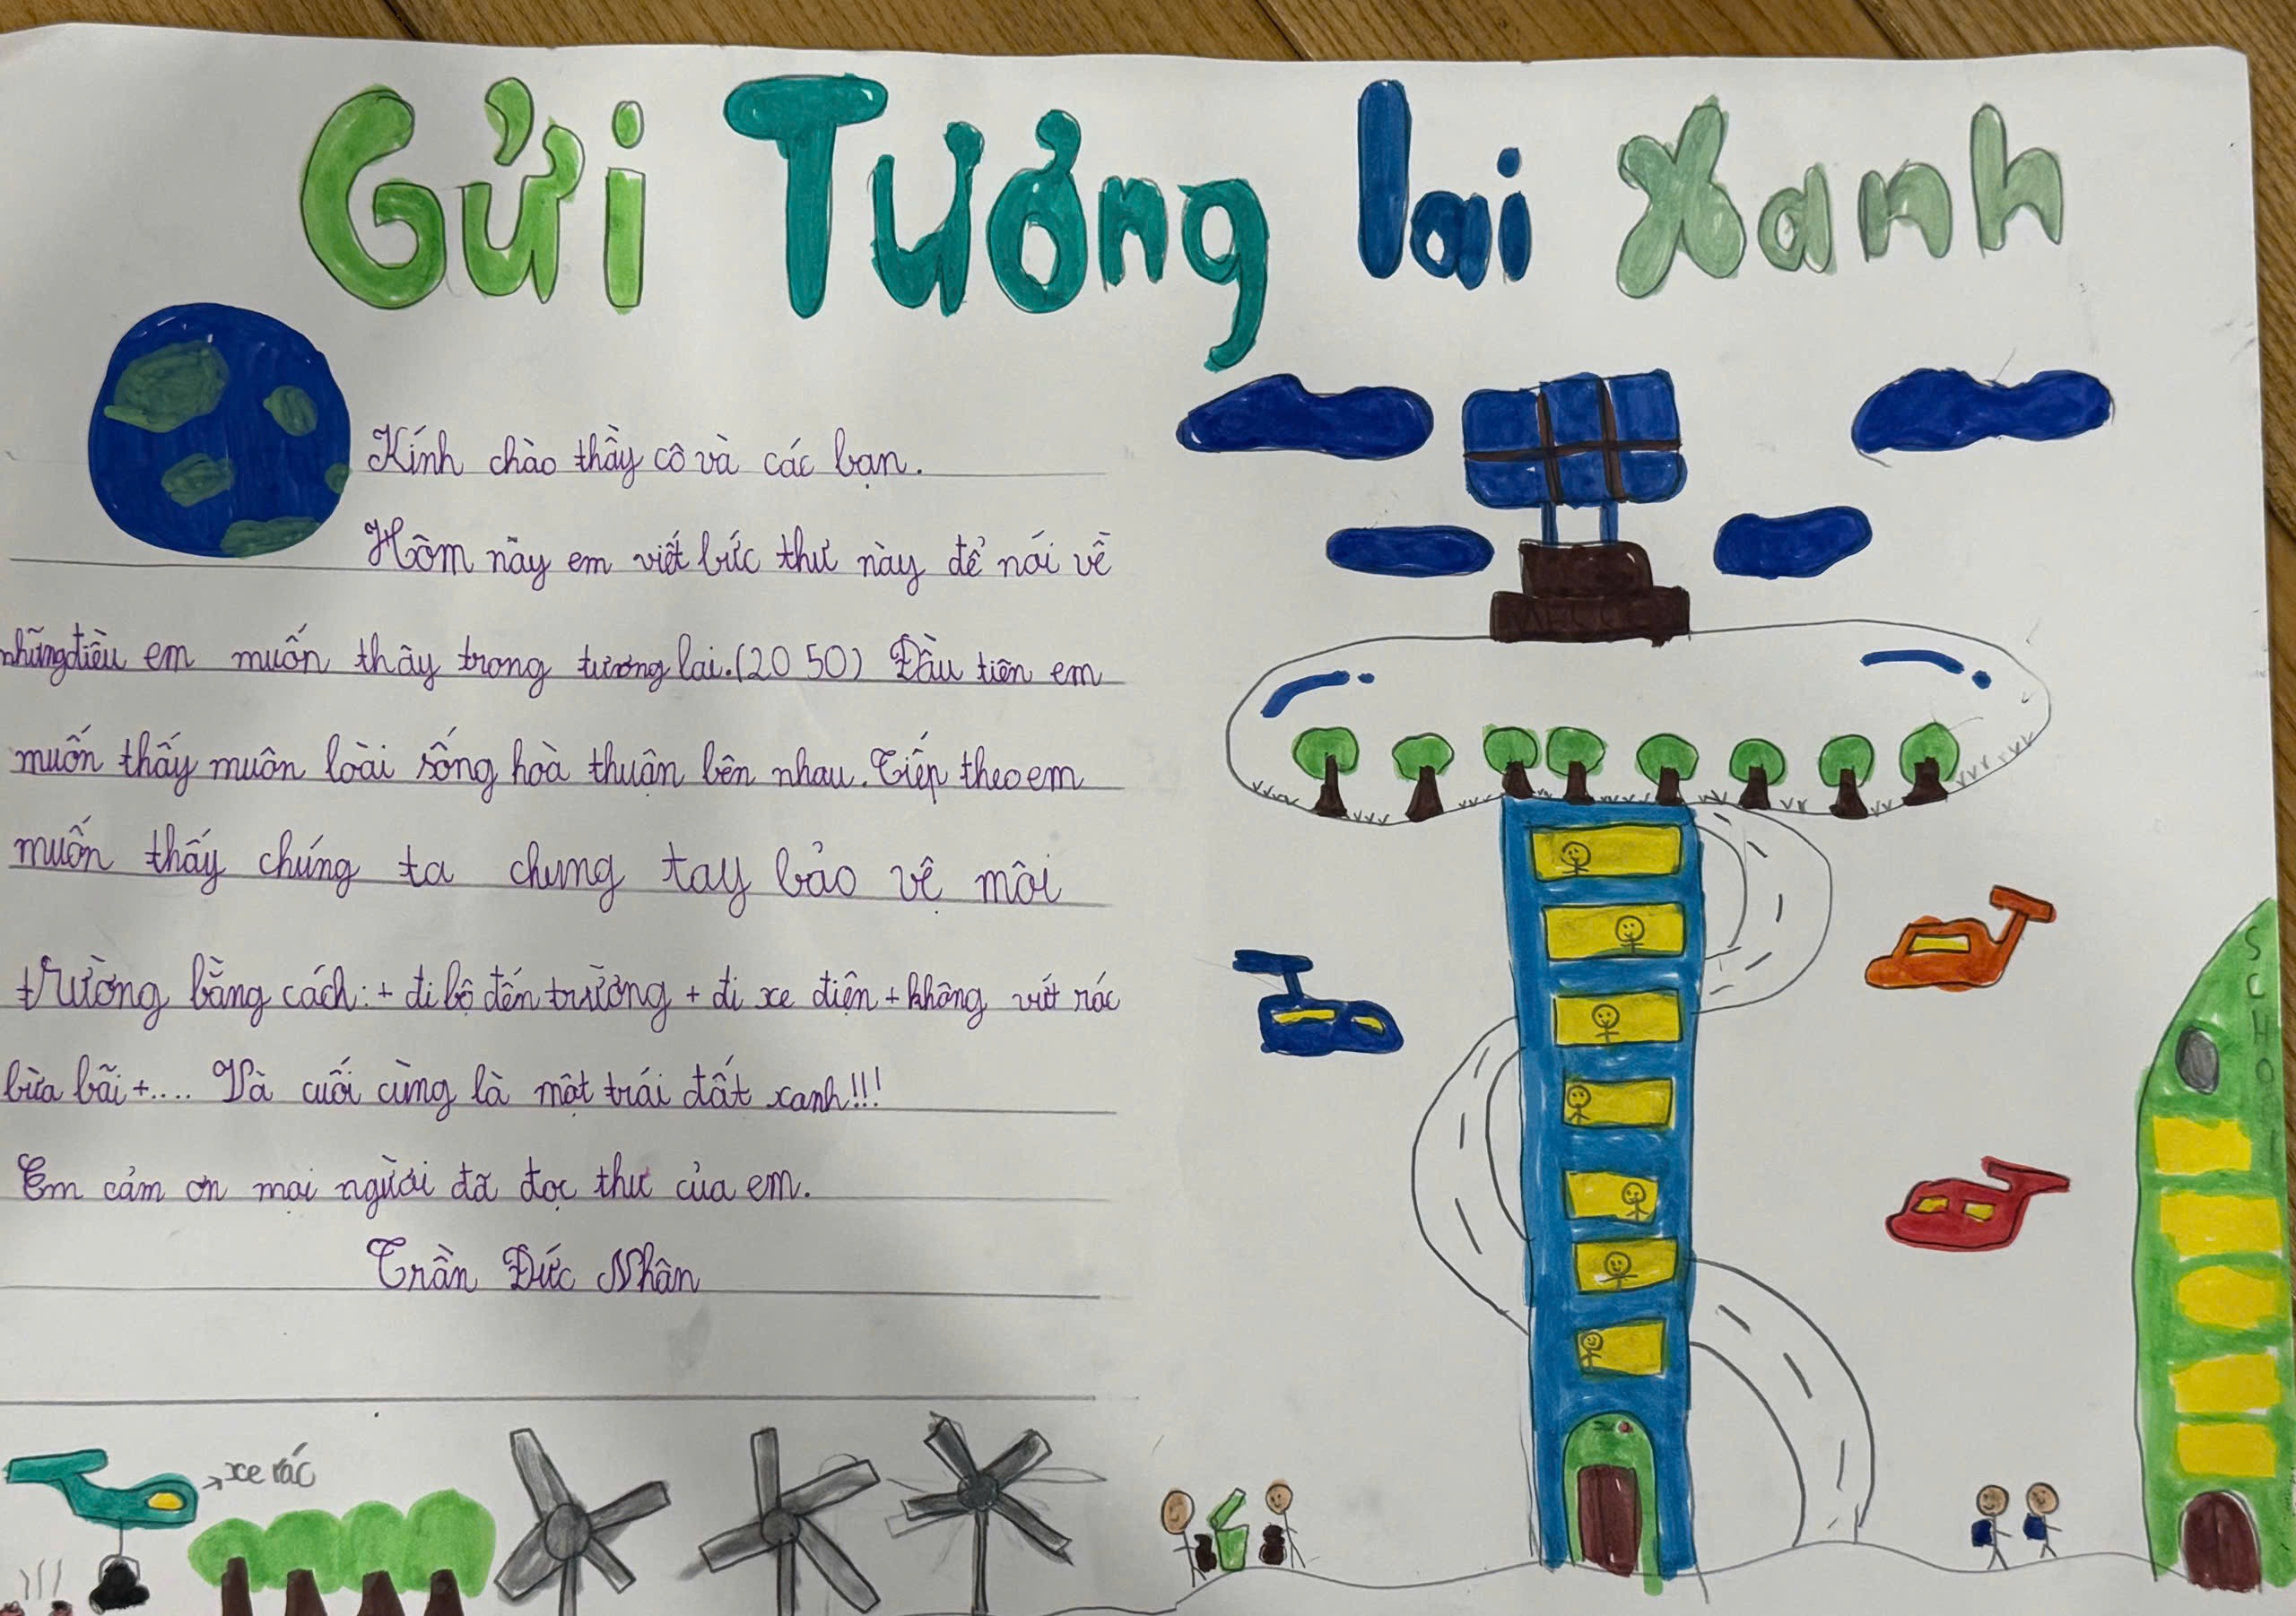 Gửi Tương lai Xanh
Kính chào thầy cô và các bạn.
Hôm nay em viết bức thư này để nói về
những điều em muốn thấy trong tương lai.(2050) Đầu tiên em
muốn thấy muôn loài sống hoà thuận bên nhau. Tiếp theo em
muốn thấy chúng ta chung tay bảo vệ môi
trường bằng cách: + đi bộ đến trường + đi xe điện + không vứt rác
bừa bãi +.... Và cuối cùng là một trái đất xanh!!!
Em cảm ơn mọi người đã đọc thư của em.
Trần Đức Nhân
xe rác